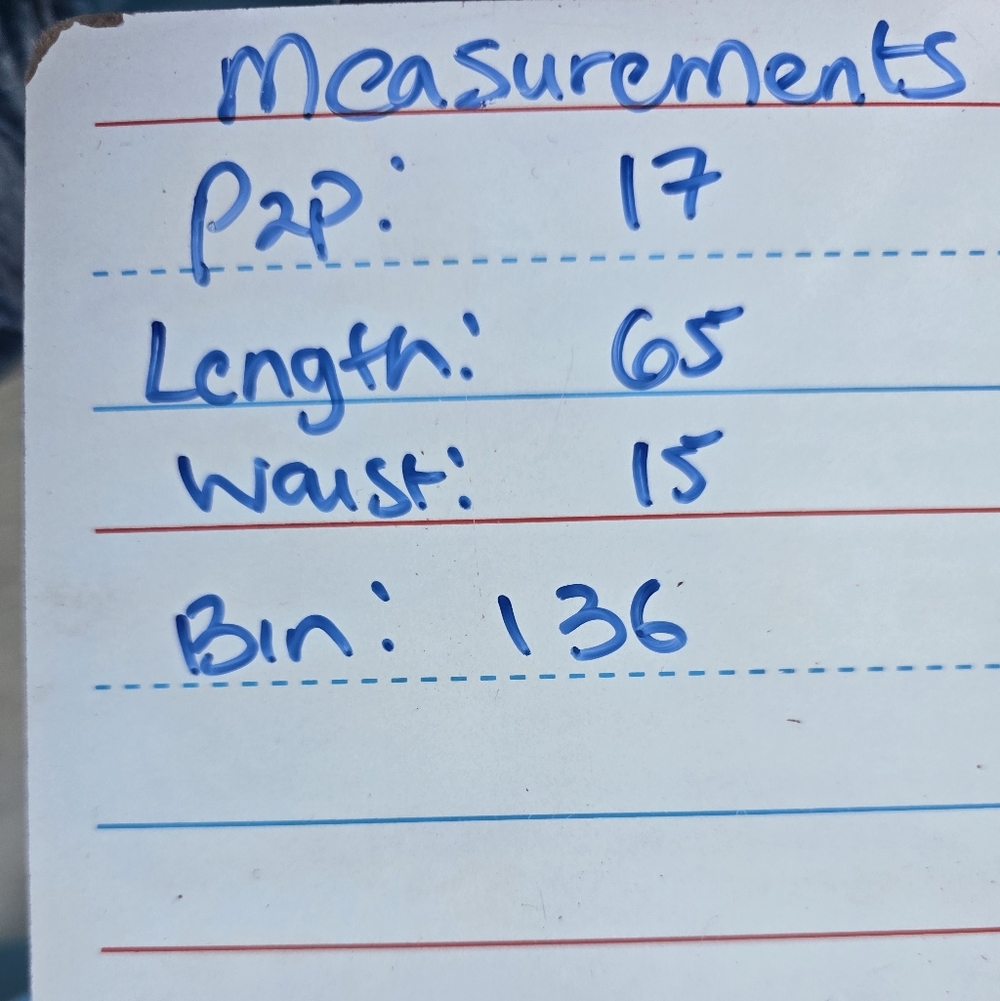 Measurements
P2P: 17
Length: 65
Waist: 15
Bin: 136